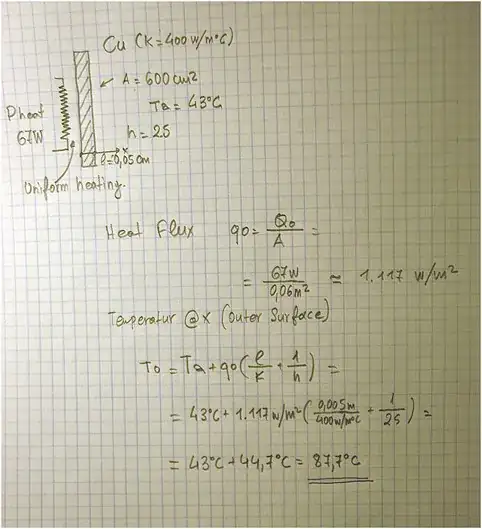 Cu (K=400 W/m°C)
A = 600 cm²
Ta = 43°C
Pheat
67W
h = 25
l=0,05 cm
Uniform heating.
Heat Flux q0 = Q0/A =
= 67W/0,06m² ≈ 1.117 W/m²
Temperatur @ x (Outer Surface)
To = Ta + q0 (l/K + 1/h) =
= 43°C + 1.117 W/m² (0,005m/400W/m°C + 1/25) =
= 43°C + 44,7°C = 87,7°C